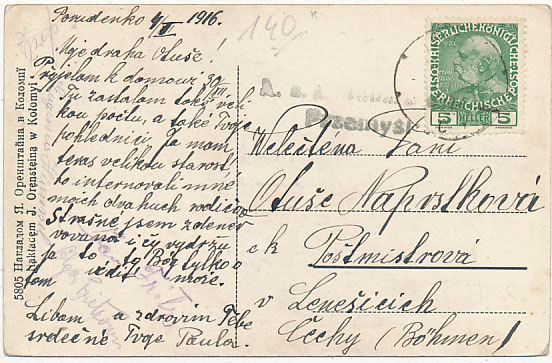 Ponidenko 4/II 1916.
140
Moje draha Otuše!
Přyjelam k domowi 30/III
Tu zastalam takou veli-
kou počtu, a také Tvoje
pohlednici. Ja mam
teras velikou starost
to internovali mne
mojich dvahuch rodičov
Strašně jsem zdener-
vovana i čy vydržu
ja to to Bog tylko
tom vidit može.
Libam a zdrovim Tebe
srdečně Tvoje Paula.
5805 Накладом Я. Оренштайна в Коломиї
Nakładem J. Orensteina w Kołomyi
KAISERLICHE KÖNIGLICHE
ÖSTERREICHISCHE
5 HELLER 5
Przemyśl
Velectena Pani
Otuše Naprstková
c k Poštmistrová
v Lenešicich
Čechy (Böhmen)